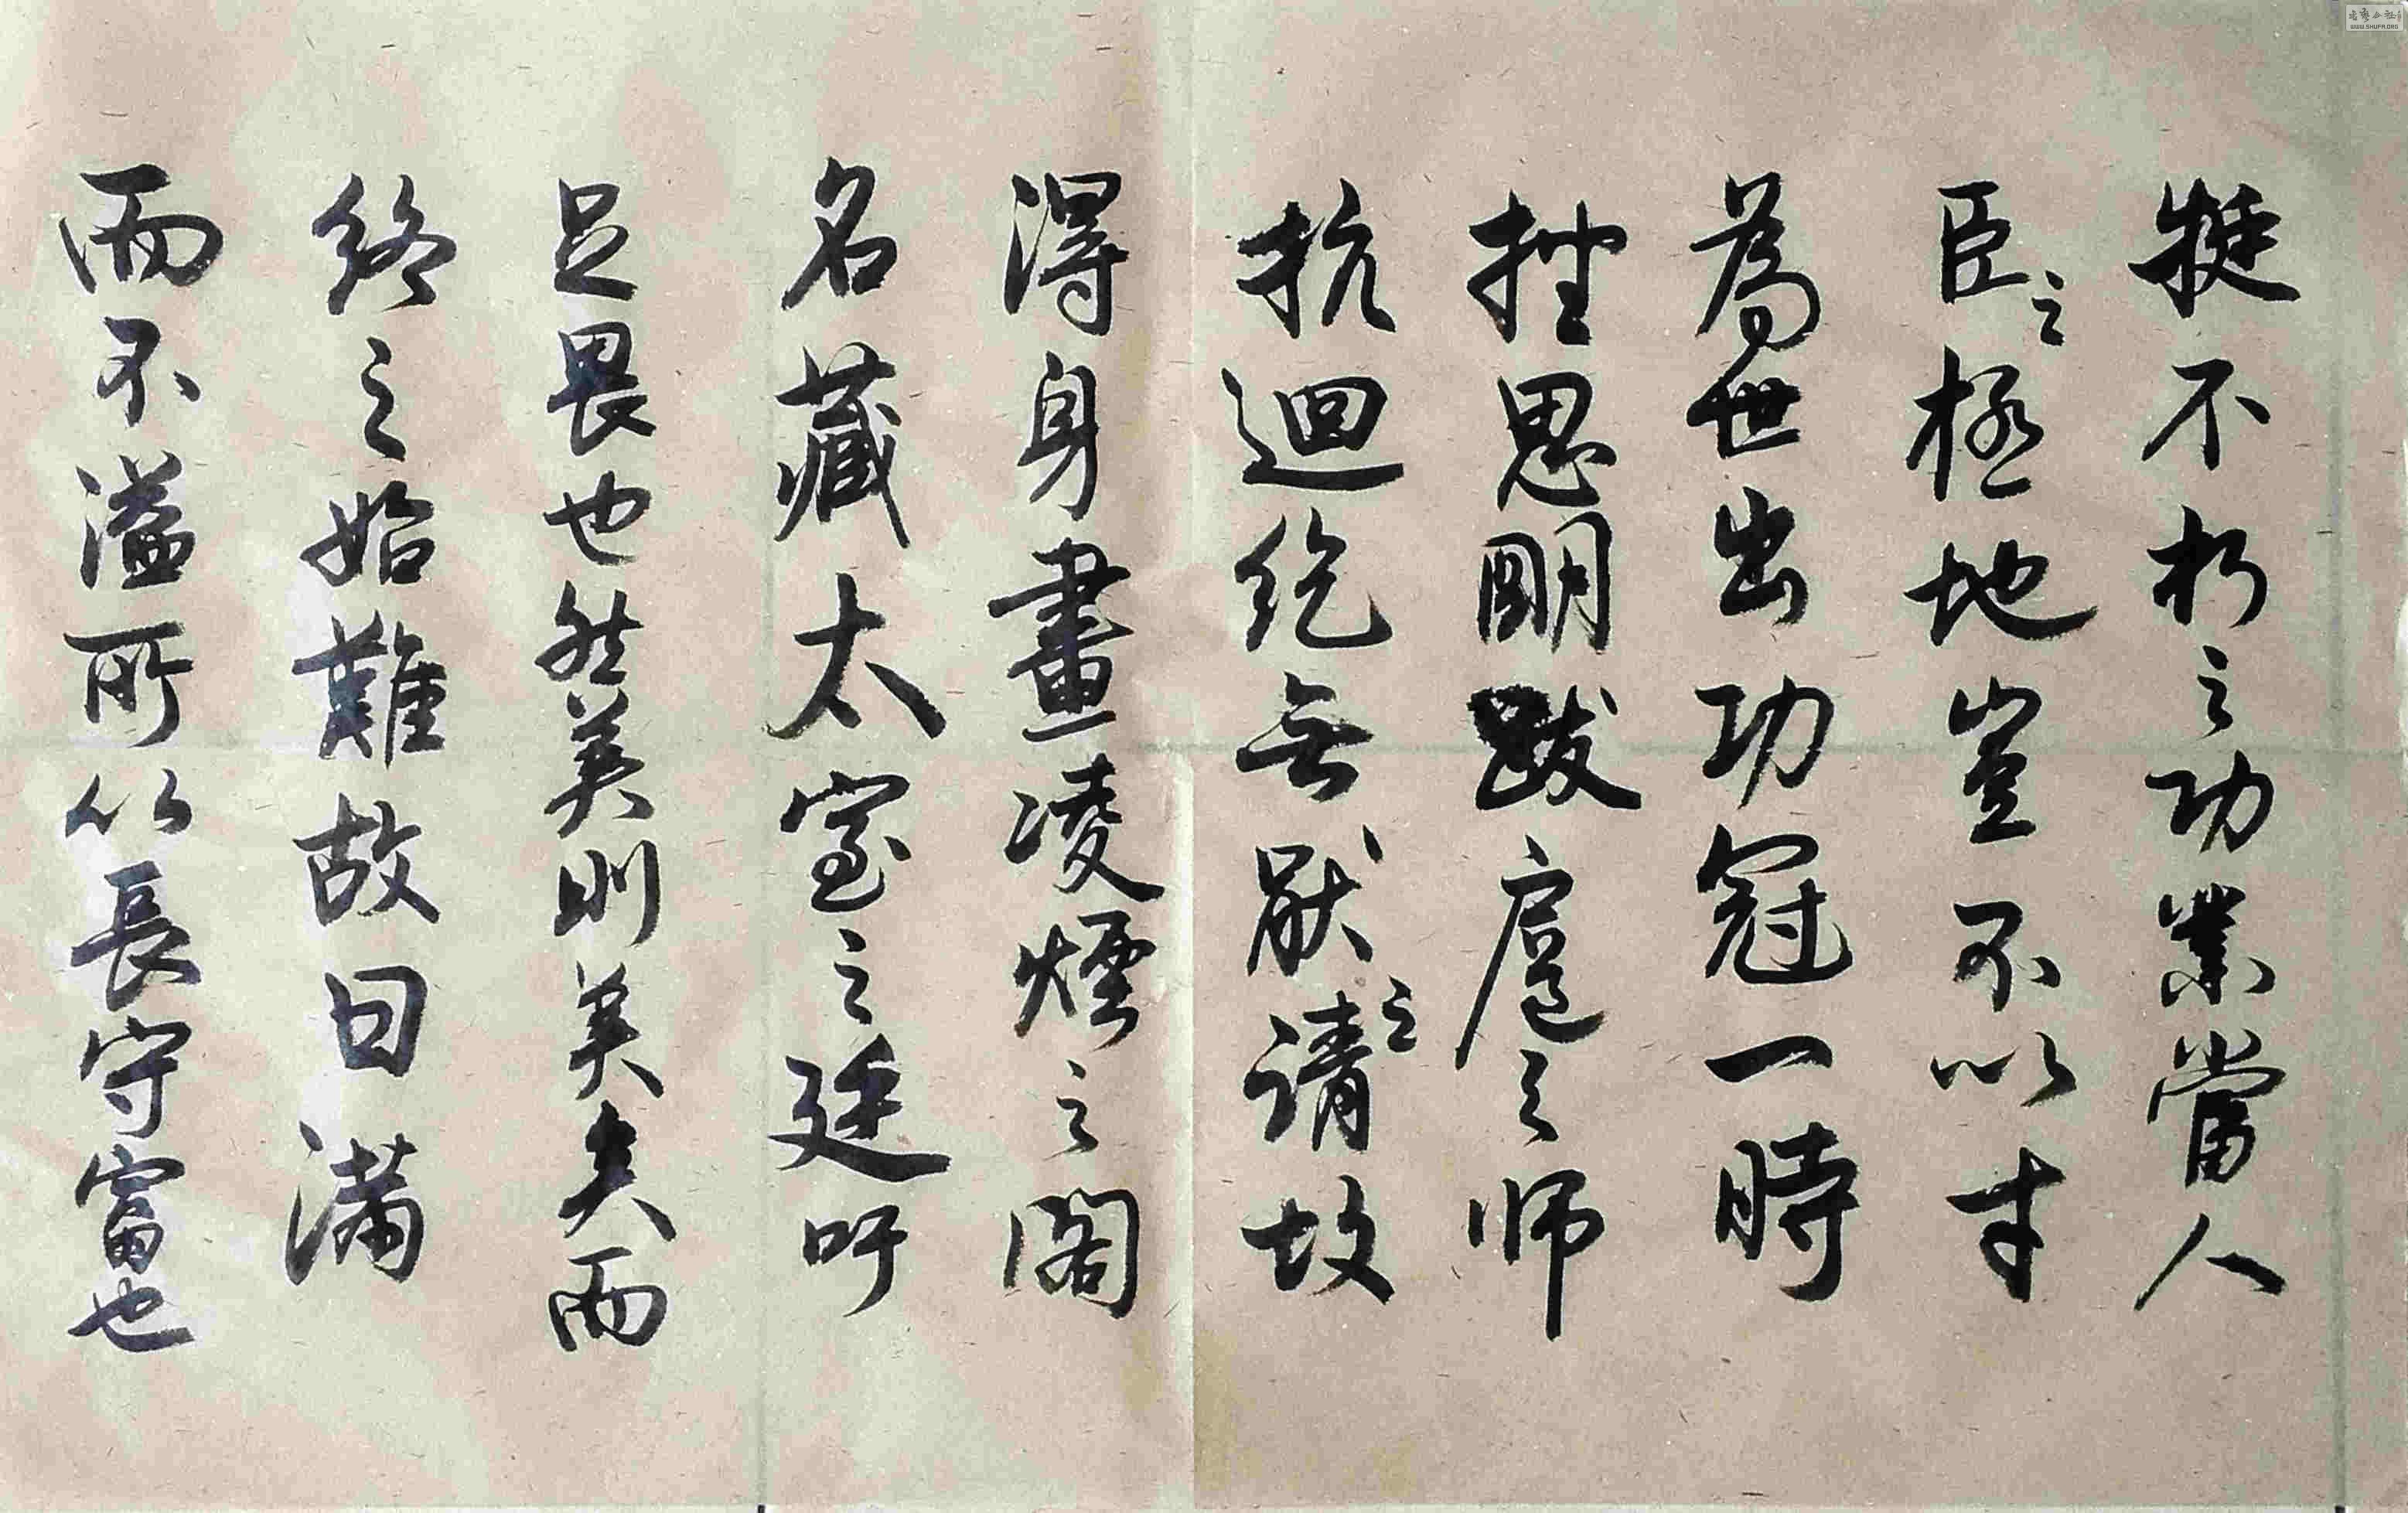 挺不朽之功業當人
臣之極地豈不以才
為世出功冠一時
挫思明跋扈之师
抗迴紇無厭之請故
得身畫凌煙之閣
名藏太室之廷吁
足畏也然美則美矣而
終之始難故曰滿
而不溢所以長守富也
WWW.SHUFA.ORG